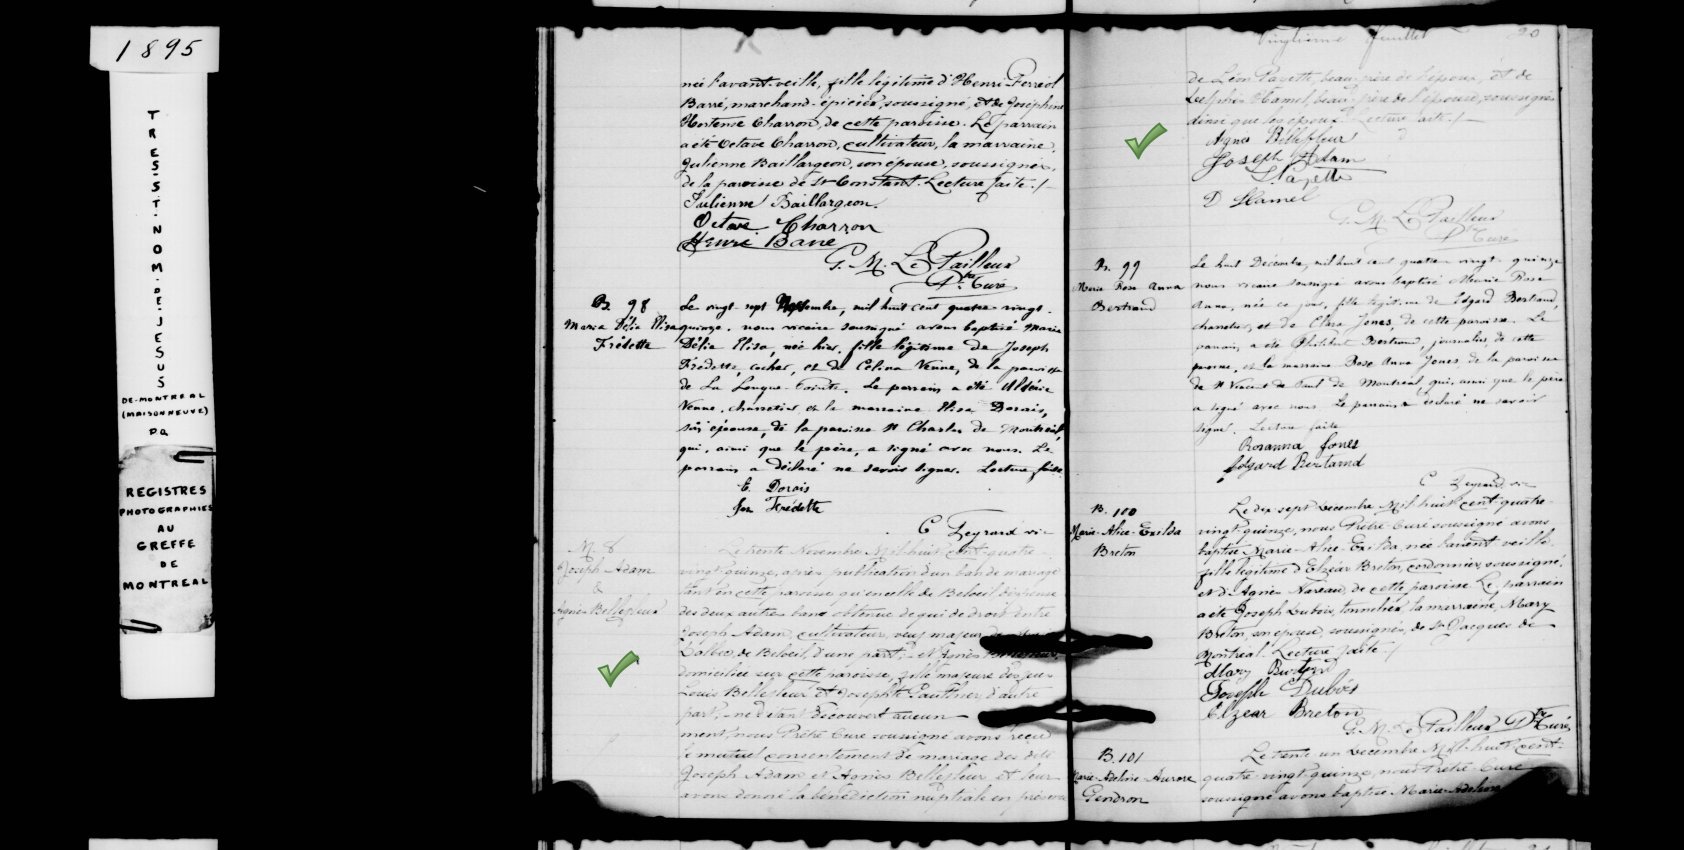 1895
TRÈS-ST-NOM-DE-JESUS
DE-MONTREAL
(MAISONNEUVE)
PQ
REGISTRES
PHOTOGRAPHIES
AU
GREFFE
DE
MONTREAL
née l'avant-veille, fille légitime d'Henri Ferréol
Barré, marchand-épicier, soussigné, et de Joséphine
Hortense Charron, de cette paroisse. Le parrain
a été Octave Charron, cultivateur, la marraine,
Julienne Baillargeon, son épouse, soussignés,
de la paroisse de St Constant. Lecture faite./.
Julienne Baillargeon.
Octave Charron
Henri Barré
G. M. Le Pailleur
Ptre Curé
B. 98
Maria Délia Elisa
Frédette
Le vingt-sept Novembre, mil huit cent quatre vingt-
quinze, nous vicaire soussigné avons baptisé Maria
Délia Elisa, née hier, fille légitime de Joseph
Frédette, cocher, et de Célina Venne, de la paroisse
de La Longue-Pointe. Le parrain a été
Venne, charretier et la marraine Elisa Dorais,
son épouse, de la paroisse St Charles de Montréal,
qui, ainsi que le père, a signé avec nous. Le
parrain a déclaré ne savoir signer. Lecture faite.
E. Dorais
Jos Frédette
vic
M 8
Joseph Adam
&
Agnès Bellefleur
Le trente Novembre Mil-huit-cent-quatre
vingt-quinze, après publication d'un ban de mariage
tant en cette paroisse qu'en celle de Beloeil dispense
des deux autres bans obtenue de qui de droit entre
Joseph Adam, cultivateur, veuf majeur de
de Beloeil, d'une part; et Agnès Bellefleur,
domiciliée sur cette paroisse, fille majeure des feus
Louis Bellefleur et Josephte Gauthier d'autre
part, ne s'étant découvert aucun
ment, nous Prêtre Curé soussigné avons reçu
le mutuel consentement de mariage des dits
Joseph Adam et Agnès Bellefleur et leur
avons donné la bénédiction nuptiale en présence
Vingtième feuillet 20
de Léon Payette, beau-père de l'époux, et de
Delphis Hamel, beau-frère de l'épouse, soussignés
ainsi que les époux. Lecture faite./.
Agnes Bellefleur
Joseph Adam
L. Payette
D Hamel
G. M. Le Pailleur
Ptre Curé
B. 99
Marie Rose Anna
Bertrand
Le huit Décembre, mil huit cent quatre-vingt-quinze
nous vicaire soussigné avons baptisé Marie Rose
Anna, née ce jour, fille légitime de Edgard Bertrand,
charretier, et de Clara Jones, de cette paroisse. Le
parrain a été Philibert Bertrand, journalier, de cette
paroisse, et la marraine Rose Anna Jones, de la paroisse
de St Vincent de Paul de Montréal, qui, ainsi que le père
a signé avec nous. Le parrain a déclaré ne savoir
signer. Lecture faite
Rosanna Jones
Edgard Bertrand
vic
B. 100
Marie-Alice-Exilda
Breton
Le dix-sept Décembre Mil-huit-cent-quatre-
vingt-quinze, nous Prêtre-Curé soussigné avons
baptisé Marie-Alice-Exilda, née l'avant veille,
fille légitime d'Elzéar Breton, cordonnier, soussigné,
et d'Agnès Nareau, de cette paroisse. Le parrain
a été Joseph Dubois, tonnelier, la marraine, Mary
Breton, son épouse, soussignés, de St Jacques de
Montréal. Lecture faite./.
Mary Breton
Joseph Dubois
Elzear Breton
G. M. Le Pailleur Ptre Curé
B. 101
Marie-Adeline-Aurore
Gendron
Le trente un Décembre Mil-huit-cent-
quatre-vingt-quinze, nous Prêtre-Curé
soussigné avons baptisé Marie-Adeline